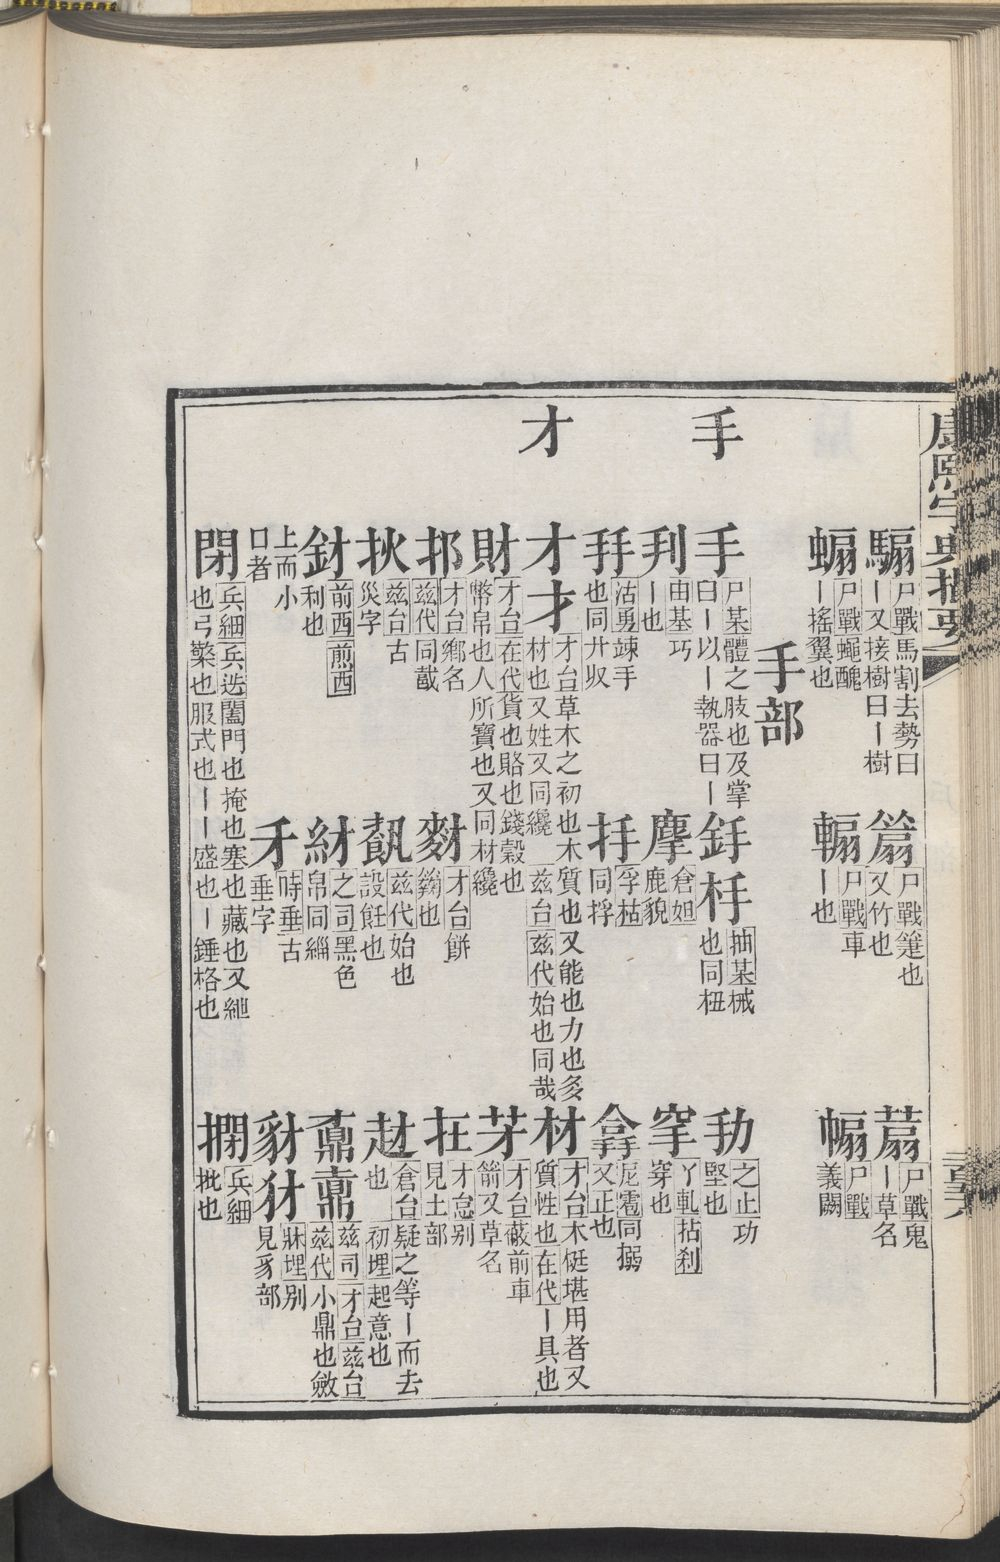 康熙字典撮要
騸 尸戰馬割去勢曰
丨又接樹曰丨樹
䈉 尸戰箑也
又竹也
萠 尸戰鬼
丨草名
蝙 尸戰蠅醜
丨搖翼也
尸戰車
丨也
尸戰
義闕
手部
手
手 尸某體之肢也及掌
曰丨以丨執器曰丨
釪 杽 抽某械
也同杻
劧 之止功
堅也
刲 由基巧
丨也
摩 倉姐
鹿貌
穵 丫軋拈剎
穿也
拜 沽勇竦手
也同廾収
捊 孚枯
同捊
拿 尼雹同搦
又正也
才
才 才 才台草木之初也木質也又能也力也多
材也又姓又同纔 玆台玆代始也同哉
材 才台木梃堪用者又
質性也在代丨具也
財 才台在代貨也賂也錢穀也
幣帛也人所寶也又同材纔
芽 才台蔽前車
箭又草名
邦 才台鄉名
玆代同酨
麨 才台餅
䴷也
在 才怠別
見土部
扻 玆台古
災字
飺 玆代始也
設飪也
赼 倉台疑之等丨而去
也 初埋起意也
釮 前西煎酉
利也
紂 之司黑色
帛同緇
鼒 鼒 玆司才台玆台
玆代小鼎也斂
上而小
口者
禾 時垂古
垂字
豺 犲 牀埋別
見豸部
閉 兵細兵迭闔門也掩也塞也藏也又紲
也弓檠也服式也丨丨盛也丨錘格也
㨲 兵細
批也
二百三六